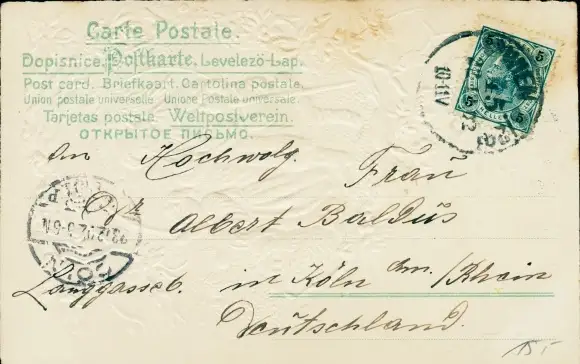 Carte Postale.
Dopisnice. Postkarte. Levelező-Lap.
Post card. Briefkaart. Cartolina postale.
Union postale universelle. Unione Postale universale.
Tarjetas postale. Weltpostverein.
ОТКРЫТОЕ ПИСЬМО.
5 5
5 5
10-11V
An Hochwolg. Frau
Albert Baldus
Langgasse 6. in Köln Am. /Rhein
Deutschland.
15-